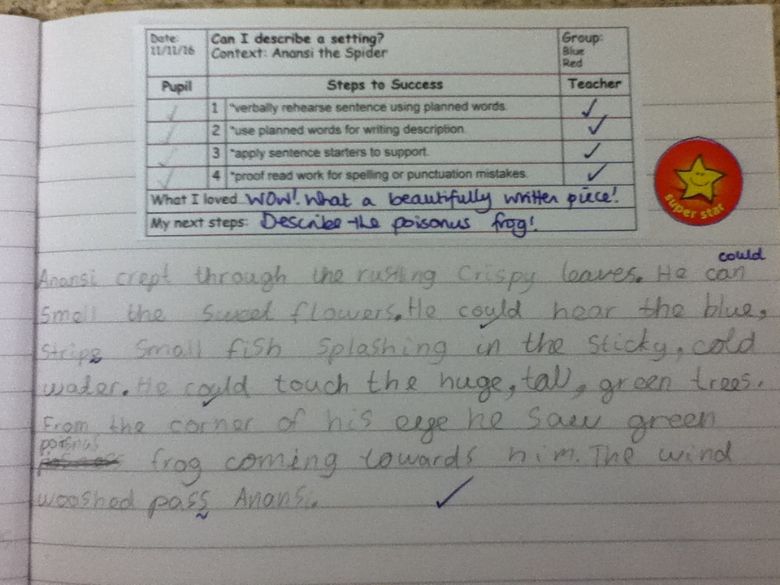 Date: Can I describe a setting? Group:
11/11/16 Context: Anansi the Spider Blue
Red
Pupil Steps to Success Teacher
1 *verbally rehearse sentence using planned words.
2 *use planned words for writing description.
3 *apply sentence starters to support.
4 *proof read work for spelling or punctuation mistakes.
What I loved WOW! What a beautifully written piece!
My next steps: Describe the poisonus frog!
super star
could
Anansi crept through the rustling Crispy leaves. He can
Smell the sweet flowers. He could hear the blue,
stripe small fish splashing in the sticky, cold
water. He could touch the huge, tall, green trees.
From the corner of his eege he saw green
poisnus
frog coming towards him. The wind
wooshed pass Anansi.